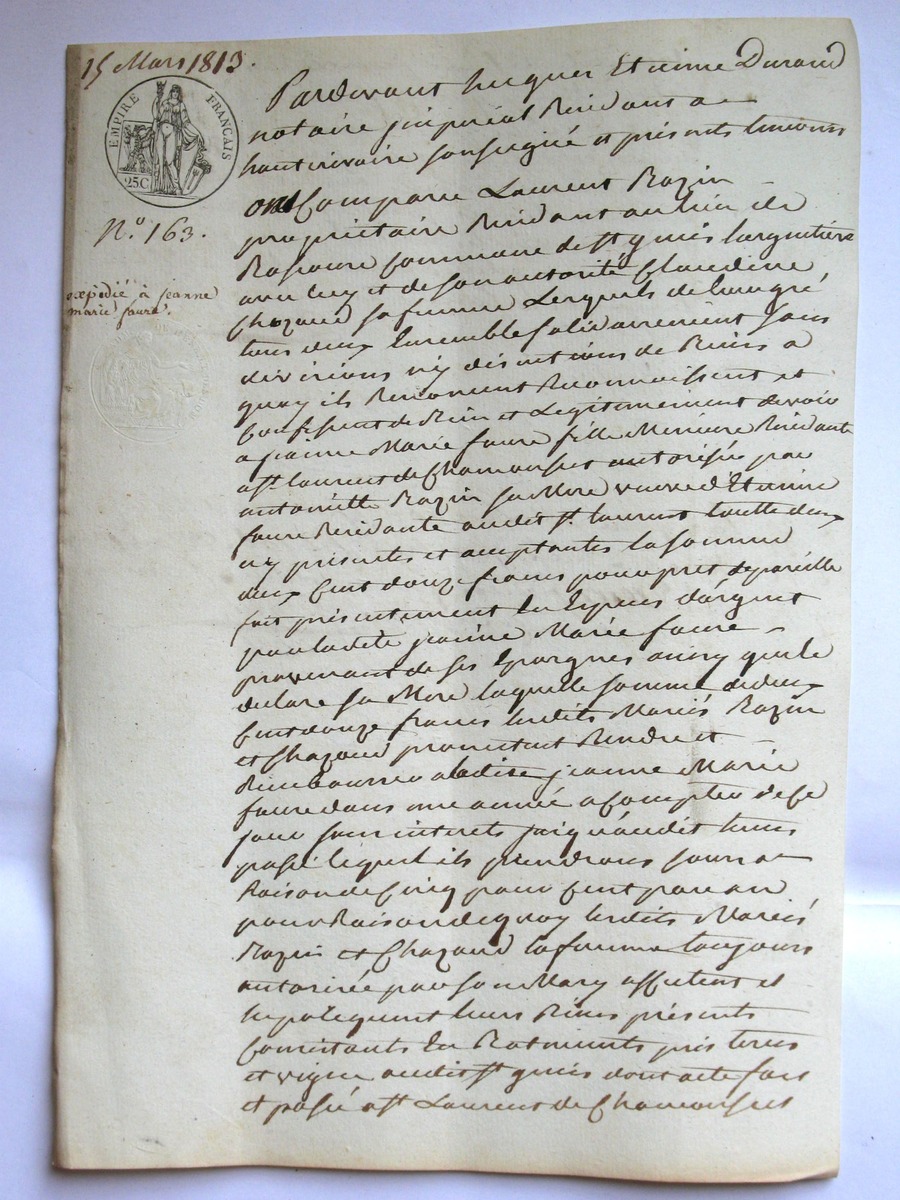 15 Mars 1813.
EMPIRE FRANÇAIS
25C
N.º 163.
expédié à jeanne
marie faure.
Pardevant Jacques Etienne Durand
notaire jmpérial Residant a
hauterivoire soussigné et présents temoins
ont Comparu Laurent Razin
propriétaire Residant au lieu de
commune de St genis largentière
avec luy et de son autorité Claudine
Chazaud sa femme Lesquels de leur gré
tous deux Ensemble solidairement sans
divisions ny discutions de Biens a
quoy ils Renoncent Reconnaissent et
Confessent de Bien et Légitimement devoir
a jeanne Marie faure fille Mineure Residante
a St laurent de Chamousset autorisée par
antoinette Razin sa Mere veuve d'Etienne
faure Residante audit St laurent toutte deux
icy présentes et acceptantes la somme
deux Cent douze francs pour prêt de pareille
fait présentement En Espèces d'argent
par ladite jeanne Marie faure
provenant de ses Epargnes ainsy que le
declare sa Mere laquelle somme de deux
Cent douze francs lesdits Mariés Razin
et Chazaud promettent Rendre et
Rembourser a ladite jeanne Marie
faure dans une année a Compter de Ce
jour sans interets jusqu'audit temps
passé lequel ils prendront Cours a
Raison de Cinq pour Cent par an
pour Raison de quoy lesdits Mariés
Razin et Chazaud la femme toujours
autorisée par son Mary affectent et
hipotequent leurs Biens présents
Consistants En Batiments prés terres
et vigne audit St genis dont acte fait
et passé a St Laurent de Chamousset